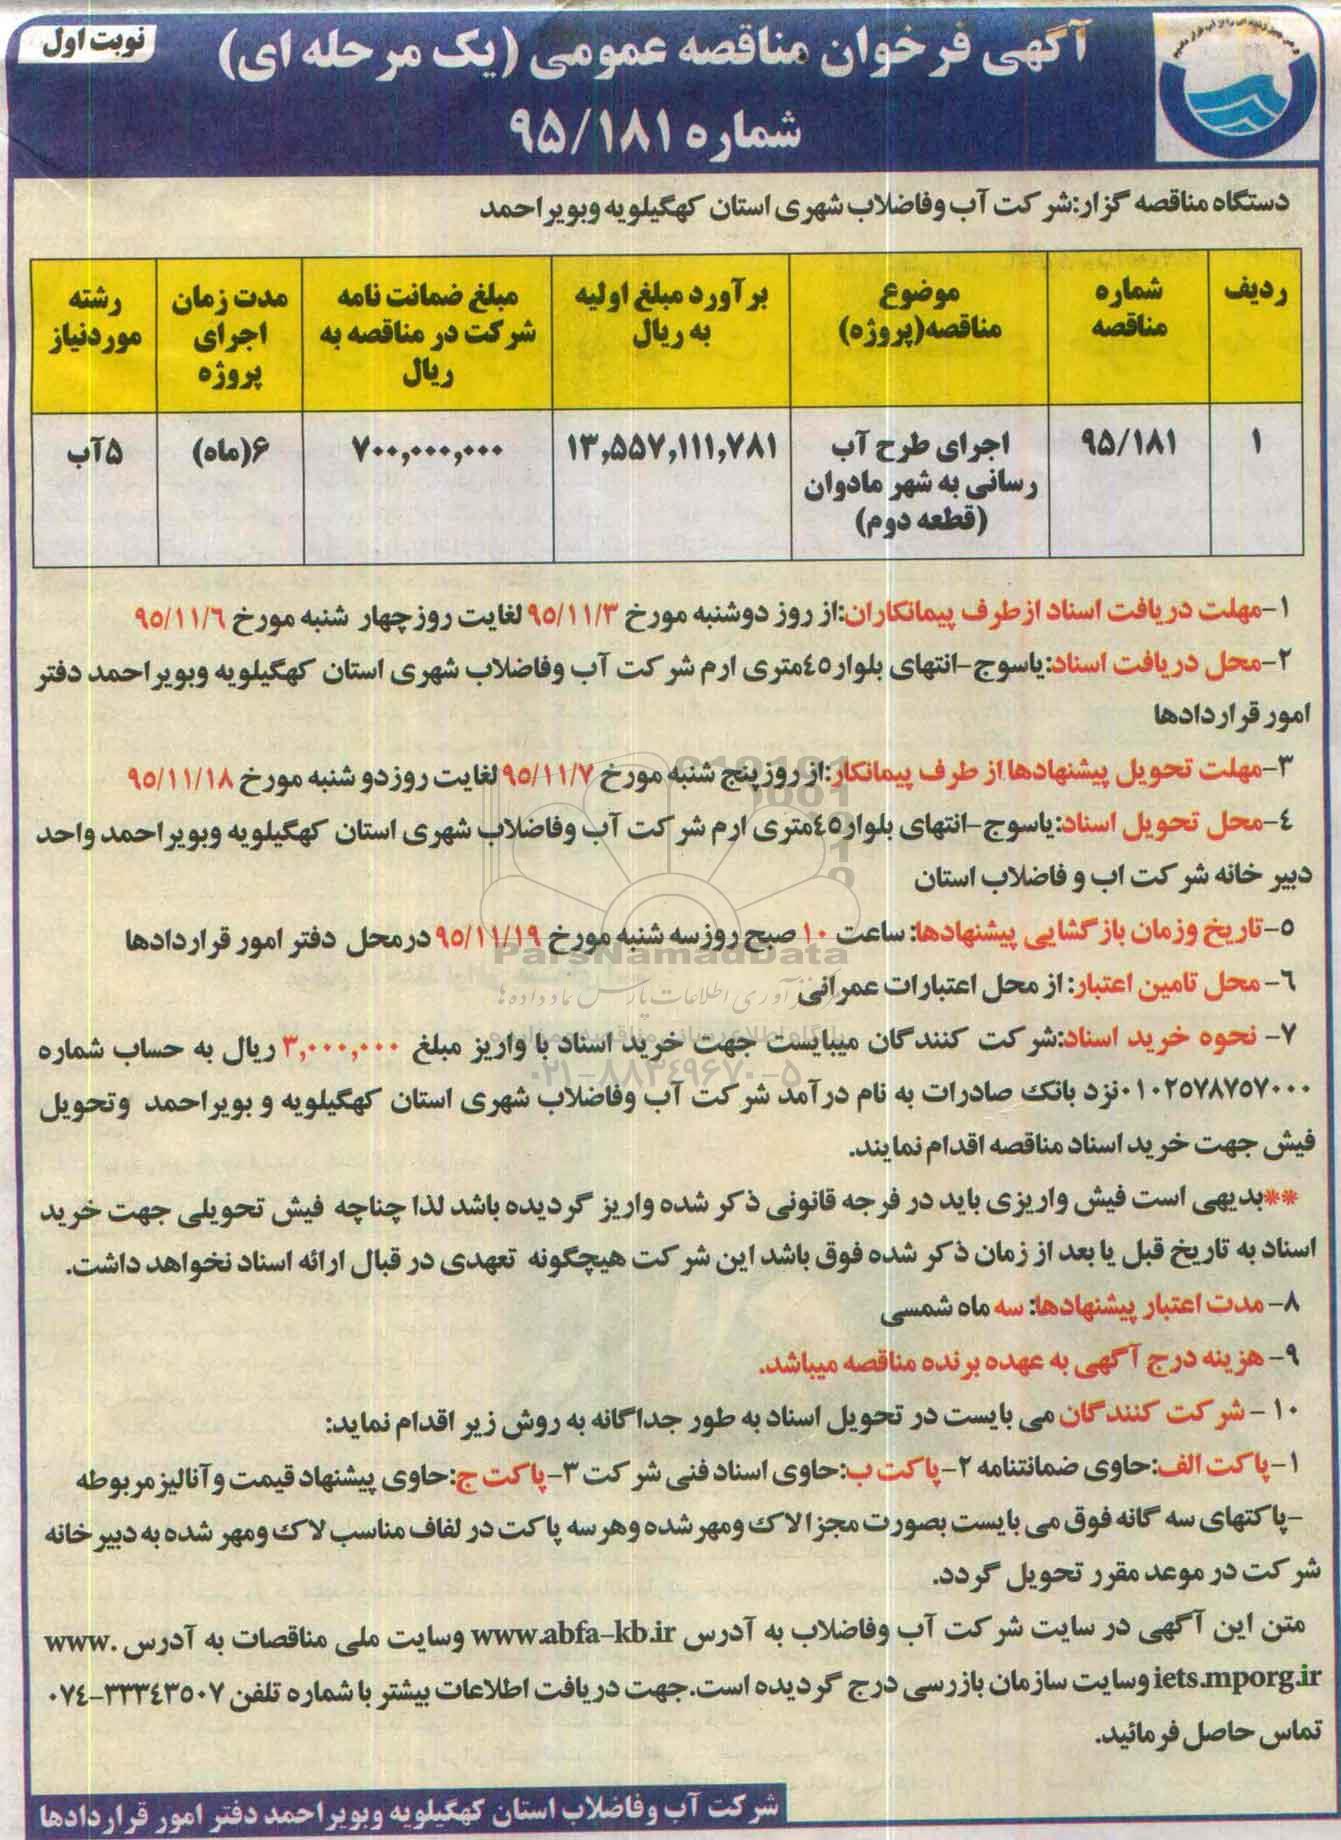 آگهی فرخوان مناقصه عمومی (یک مرحله ای)
نوبت اول
شماره ۹۵/۱۸۱
دستگاه مناقصه گزار:شرکت آب وفاضلاب شهری استان کهگیلویه وبویراحمد
ردیف
شماره مناقصه
موضوع مناقصه(پروژه)
برآورد مبلغ اولیه به ریال
مبلغ ضمانت نامه شرکت در مناقصه به ریال
مدت زمان اجرای پروژه
رشته موردنیاز
۱
۹۵/۱۸۱
اجرای طرح آب رسانی به شهر مادوان (قطعه دوم)
۱۳,۵۵۷,۱۱۱,۷۸۱
۷۰۰,۰۰۰,۰۰۰
۶(ماه)
۵آب
۱-مهلت دریافت اسناد ازطرف پیمانکاران:از روز دوشنبه مورخ ۹۵/۱۱/۳ لغایت روزچهار شنبه مورخ ۹۵/۱۱/۶
۲-محل دریافت اسناد:یاسوج-انتهای بلوار٤٥متری ارم شرکت آب وفاضلاب شهری استان کهگیلویه وبویراحمد دفتر
امور قراردادها
۳-مهلت تحویل پیشنهادها از طرف پیمانکار:از روزپنج شنبه مورخ ۹۵/۱۱/۷ لغایت روزدو شنبه مورخ ۹۵/۱۱/۱۸
٤-محل تحویل اسناد:یاسوج-انتهای بلوار٤٥متری ارم شرکت آب وفاضلاب شهری استان کهگیلویه وبویراحمد واحد
دبیر خانه شرکت اب و فاضلاب استان
۵-تاریخ وزمان بازگشایی پیشنهادها: ساعت ۱۰ صبح روزسه شنبه مورخ ۹۵/۱۱/۱۹ درمحل دفتر امور قراردادها
ParsNamadData
۶- محل تامین اعتبار: از محل اعتبارات عمرانی
۷- نحوه خرید اسناد:شرکت کنندگان میبایست جهت خرید اسناد با واریز مبلغ ۳,۰۰۰,۰۰۰ ریال به حساب شماره
۰۲۱-۸۸۳۴۹۶۷۰-۵
۰۱۰۲۵۷۸۷۵۷۰۰۰نزد بانک صادرات به نام درآمد شرکت آب وفاضلاب شهری استان کهگیلویه و بویراحمد وتحویل
فیش جهت خرید اسناد مناقصه اقدام نمایند.
**بدیهی است فیش واریزی باید در فرجه قانونی ذکر شده واریز گردیده باشد لذا چناچه فیش تحویلی جهت خرید
اسناد به تاریخ قبل یا بعد از زمان ذکر شده فوق باشد این شرکت هیچگونه تعهدی در قبال ارائه اسناد نخواهد داشت.
۸- مدت اعتبار پیشنهادها: سه ماه شمسی
۹- هزینه درج آگهی به عهده برنده مناقصه میباشد.
۱۰- شرکت کنندگان می بایست در تحویل اسناد به طور جداگانه به روش زیر اقدام نماید:
۱-پاکت الف:حاوی ضمانتنامه ۲-پاکت ب:حاوی اسناد فنی شرکت ۳-پاکت ج:حاوی پیشنهاد قیمت وآنالیزمربوطه
-پاکتهای سه گانه فوق می بایست بصورت مجزا لاک ومهرشده وهرسه پاکت در لفاف مناسب لاک ومهر شده به دبیرخانه
شرکت در موعد مقرر تحویل گردد.
متن این آگهی در سایت شرکت آب وفاضلاب به آدرس www.abfa-kb.ir وسایت ملی مناقصات به آدرس www.
iets.mporg.ir وسایت سازمان بازرسی درج گردیده است.جهت دریافت اطلاعات بیشتر با شماره تلفن ۰۷٤-۳۳۳٤۳۵۰۷
تماس حاصل فرمائید.
شرکت آب وفاضلاب استان کهگیلویه وبویراحمد دفتر امور قراردادها